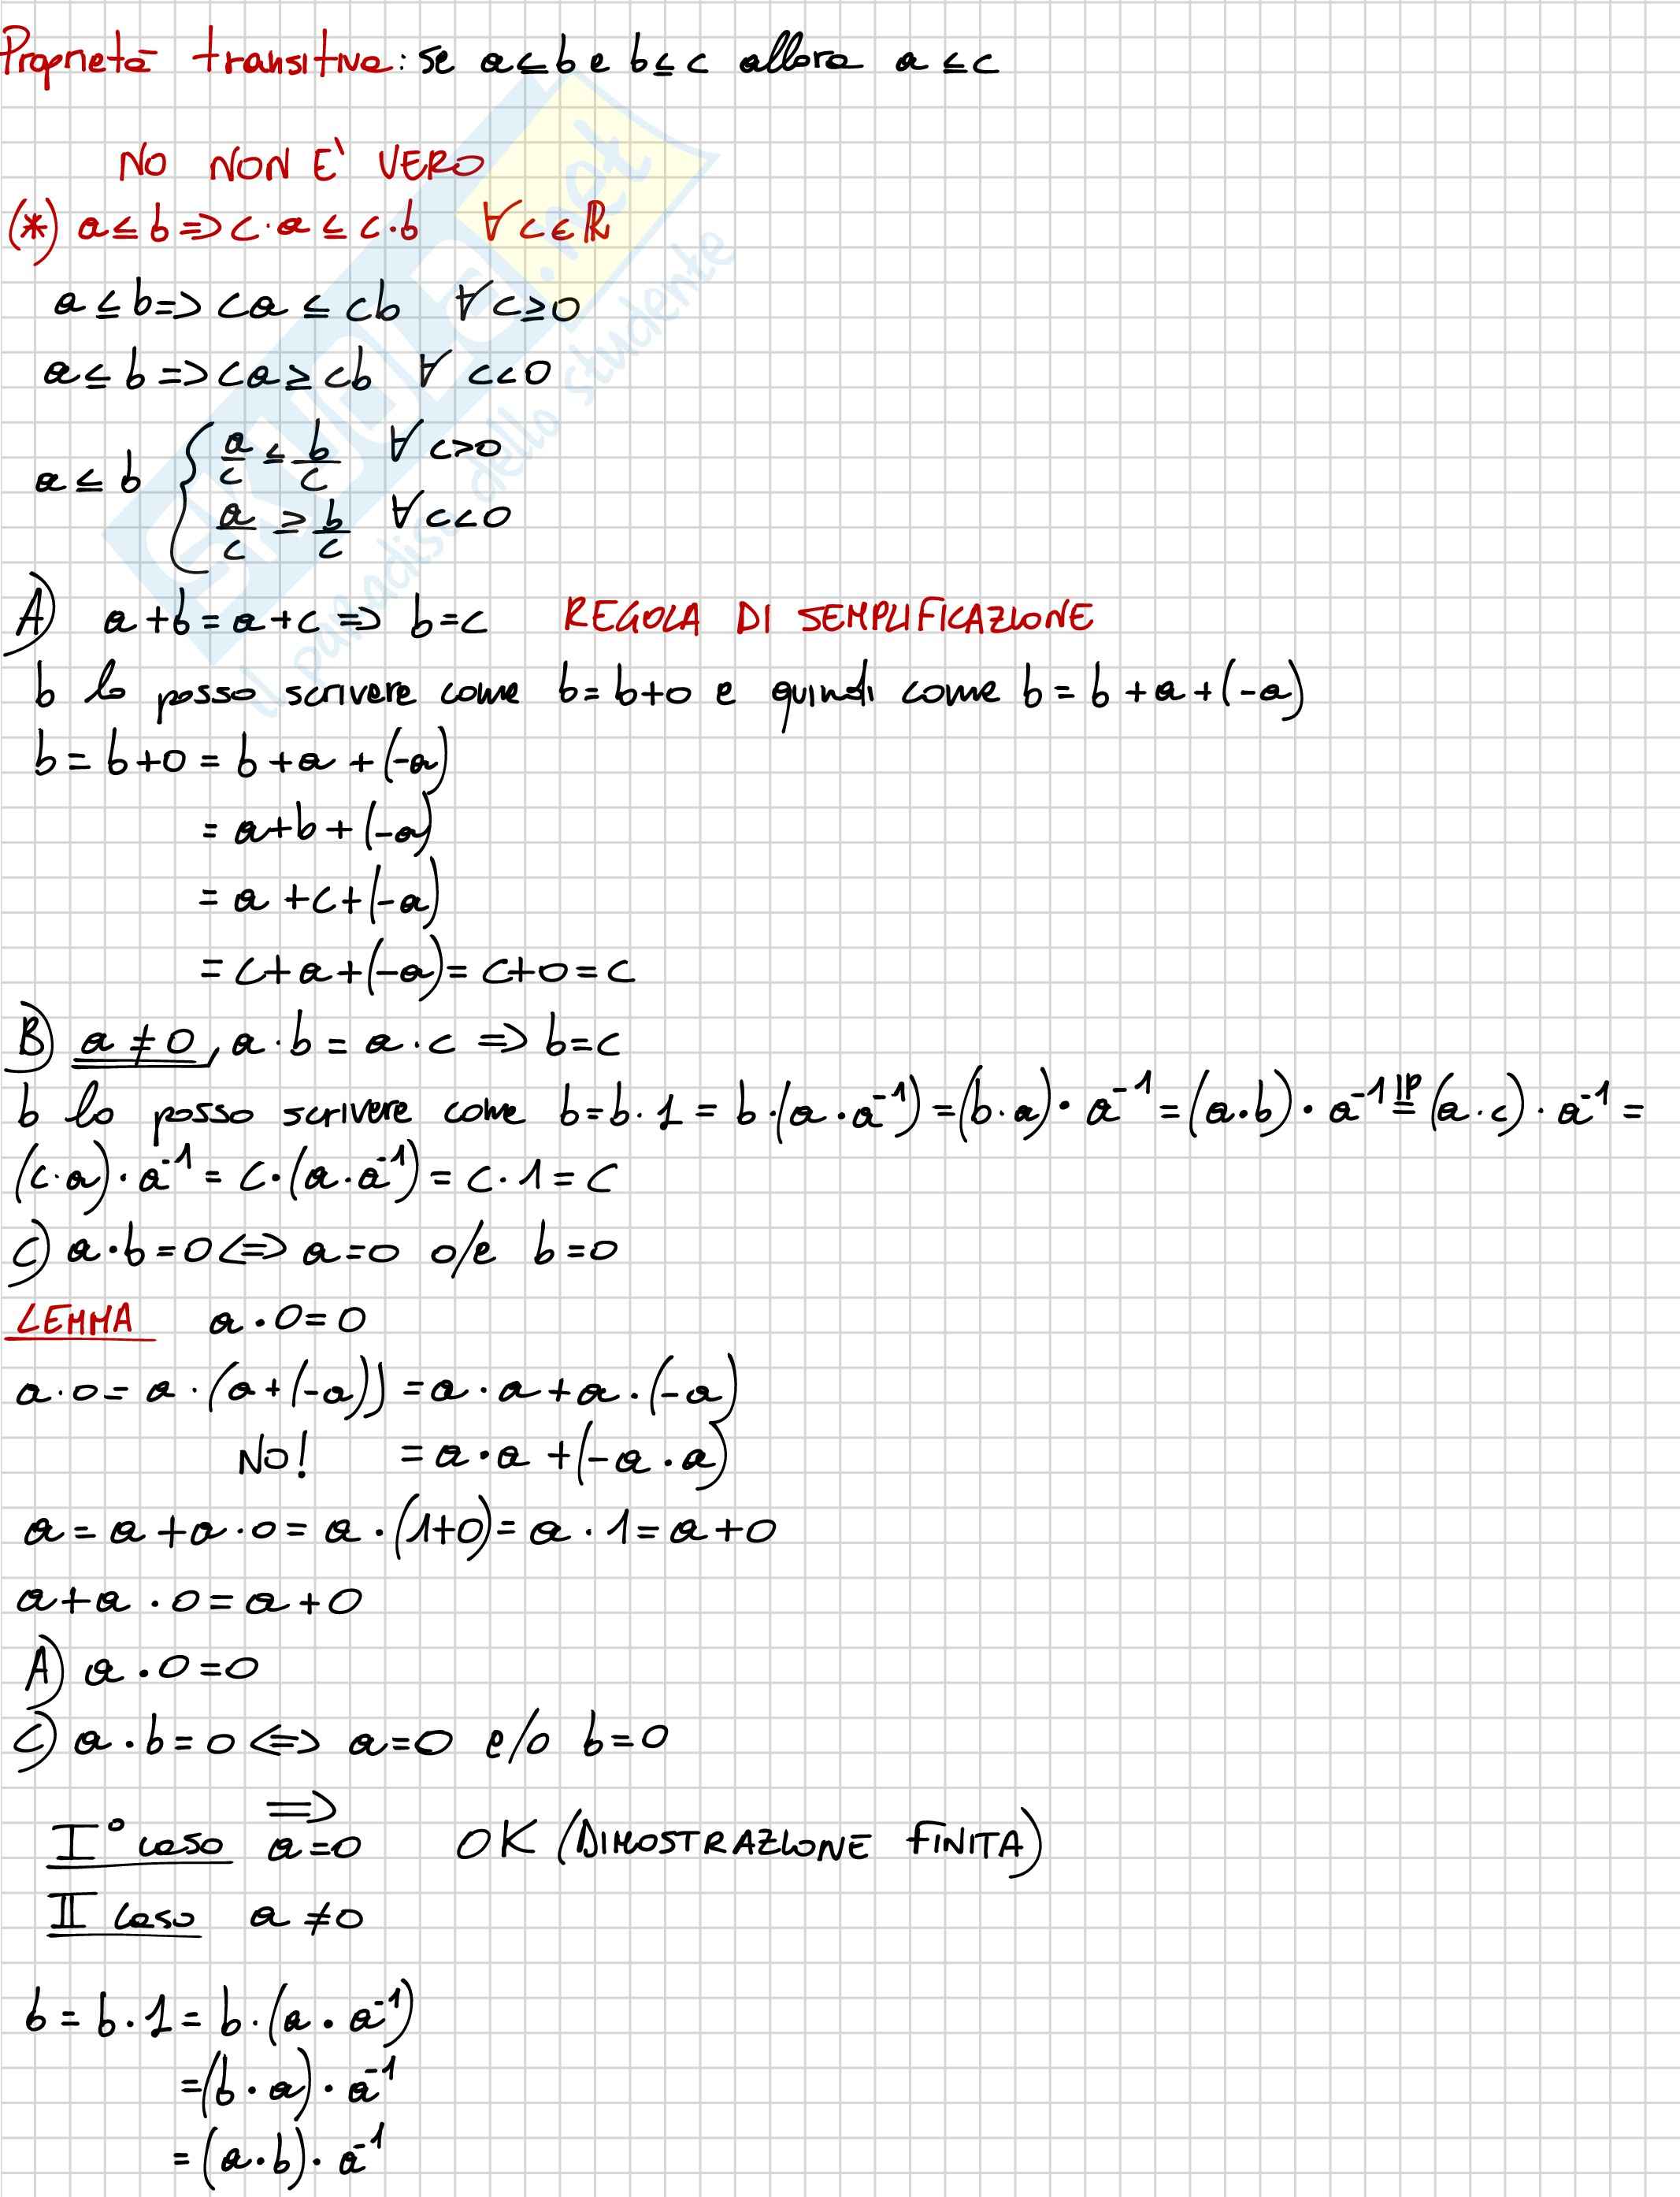 Proprietà transitiva: se a ≤ b e b ≤ c allora a ≤ c
NO NON E' VERO
(*) a ≤ b => c·a ≤ c·b ∀ c ∈ ℝ
a ≤ b => ca ≤ cb ∀ c ≥ 0
a ≤ b => ca ≥ cb ∀ c < 0
a ≤ b { a/c ≤ b/c ∀ c > 0
a/c ≥ b/c ∀ c < 0
A) a + b = a + c => b = c REGOLA DI SEMPLIFICAZIONE
b lo posso scrivere come b = b + 0 e quindi come b = b + a + (-a)
b = b + 0 = b + a + (-a)
= a + b + (-a)
= a + c + (-a)
= c + a + (-a) = c + 0 = c
B) a ≠ 0, a · b = a · c => b = c
b lo posso scrivere come b = b · 1 = b · (a · a⁻¹) = (b · a) · a⁻¹ = (a · b) · a⁻¹ =^{IP} (a · c) · a⁻¹ =
(c · a) · a⁻¹ = c · (a · a⁻¹) = c · 1 = c
C) a · b = 0 <=> a = 0 o/e b = 0
LEMMA a · 0 = 0
a · 0 = a · (a + (-a)) = a · a + a · (-a)
NO! = a · a + (-a · a)
a = a + a · 0 = a · (1+0) = a · 1 = a + 0
a + a · 0 = a + 0
A) a · 0 = 0
C) a · b = 0 <=> a = 0 e/o b = 0
=>
I° caso a = 0 OK (DIMOSTRAZIONE FINITA)
II caso a ≠ 0
b = b · 1 = b · (a · a⁻¹)
= (b · a) · a⁻¹
= (a · b) · a⁻¹
SKUOLA.net
il paradiso dello studente